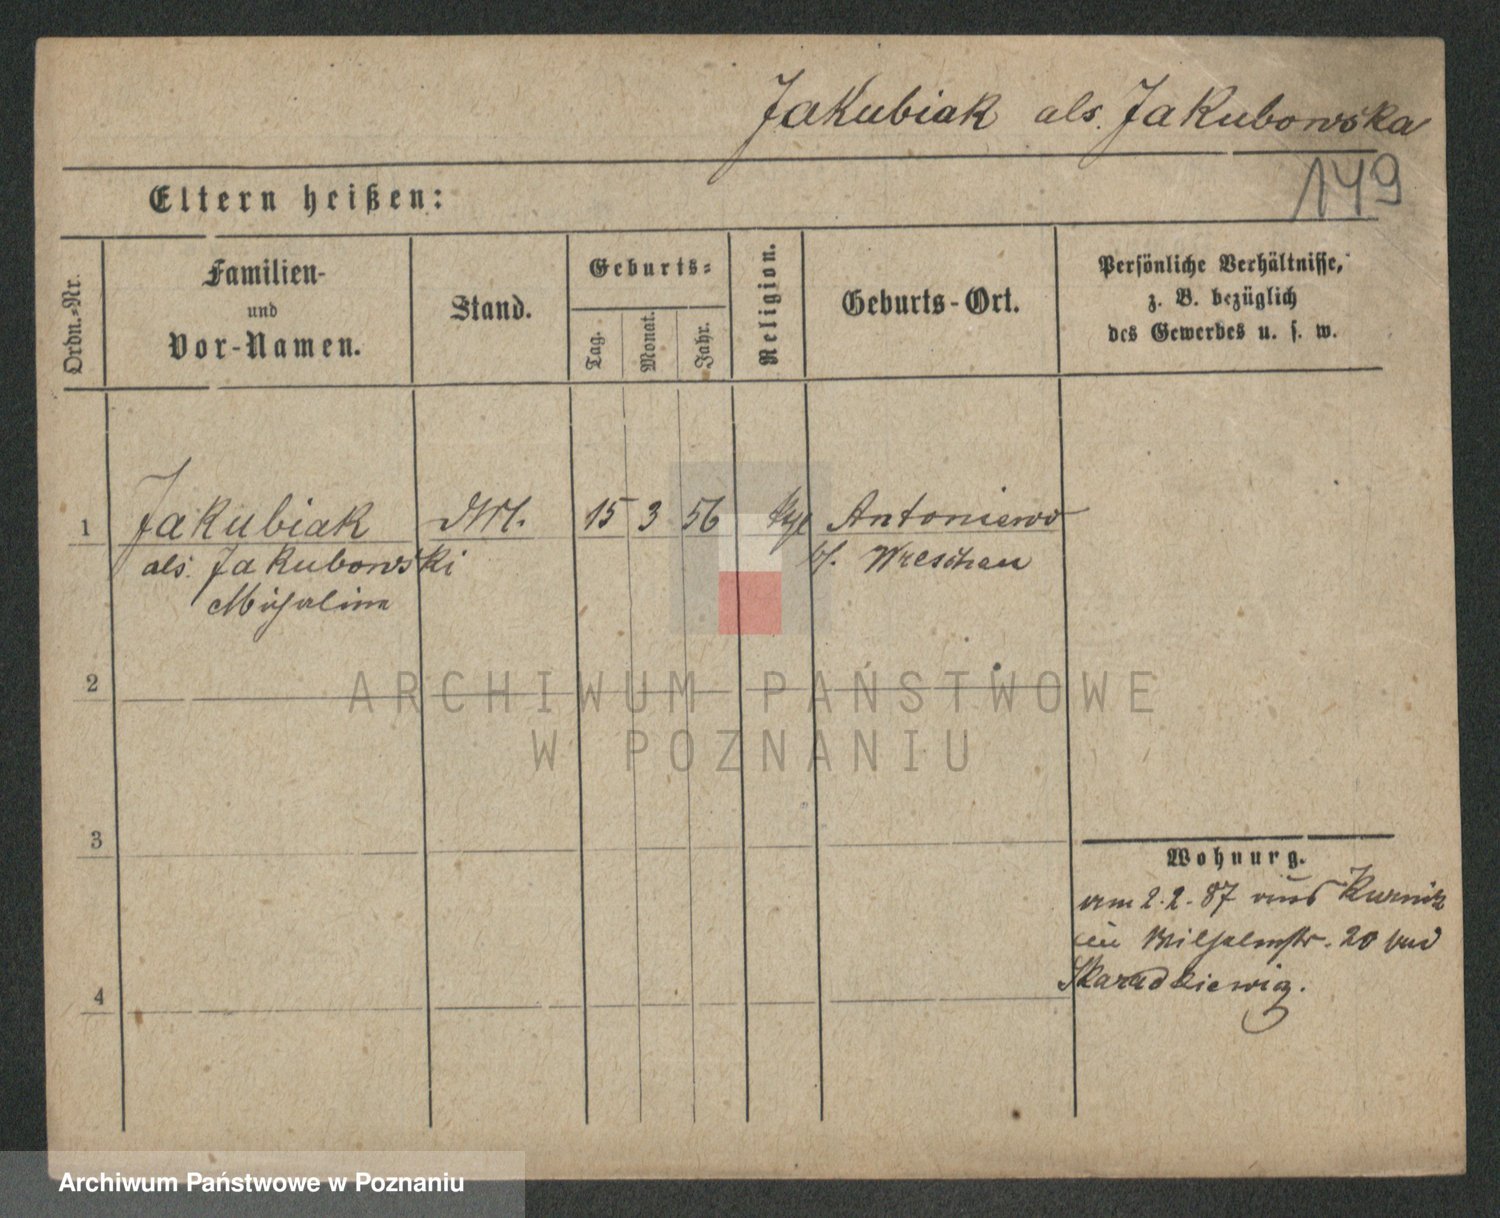 Jakubiak als. Jakubowska
149
Eltern heißen:
Ordn.-Nr.
Familien-
und
Vor-Namen.
Stand.
Geburts-
Tag.
Monat.
Jahr.
Religion.
Geburts-Ort.
Persönliche Verhältnisse,
z. B. bezüglich
des Gewerbes u. s. w.
1
Jakubiak
15 3 56
Antoniewo
als. Jakubowski
b/. Wreschen
Michalina
2
ARCHIWUM PAŃSTWOWE
W POZNANIU
3
Wohnung.
am 2.2.87 aus Kurnik
Wilhelmstr. 20 bei
Skaradkiewicz.
4
Archiwum Państwowe w Poznaniu